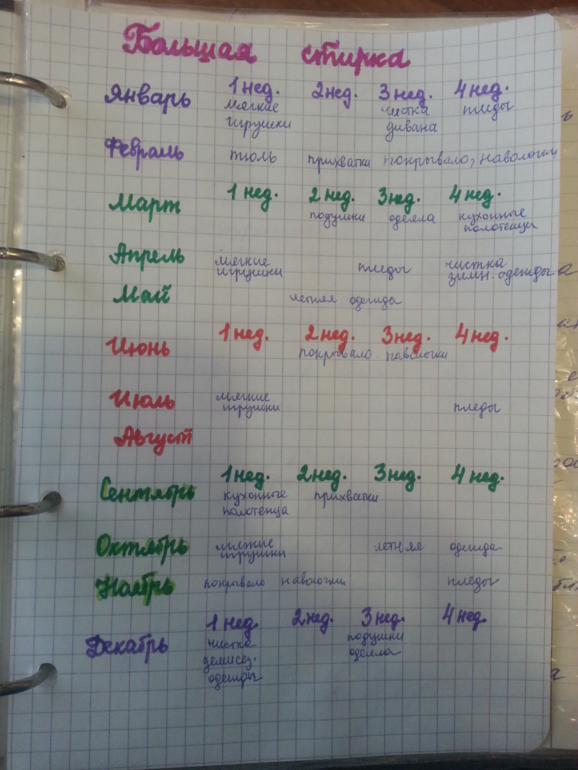 Большая стирка
Январь 1 нед. 2 нед. 3 нед. 4 нед.
мягкие чистка пледы
игрушки дивана
Февраль тюль прихватки покрывало, наволочки
Март 1 нед. 2 нед. 3 нед. 4 нед.
подушки одеяла кухонные
полотенца
Апрель мягкие пледы чистка
игрушки зимн. одежды
Май летняя одежда
Июнь 1 нед. 2 нед. 3 нед. 4 нед.
покрывало наволочки
Июль мягкие пледы
игрушки
Август
Сентябрь 1 нед. 2 нед. 3 нед. 4 нед.
кухонные прихватки
полотенца
Октябрь мягкие летняя одежда
игрушки
Ноябрь покрывало наволочки пледы
Декабрь 1 нед. 2 нед. 3 нед. 4 нед.
чистка подушки
демисез. одеяла
одежды